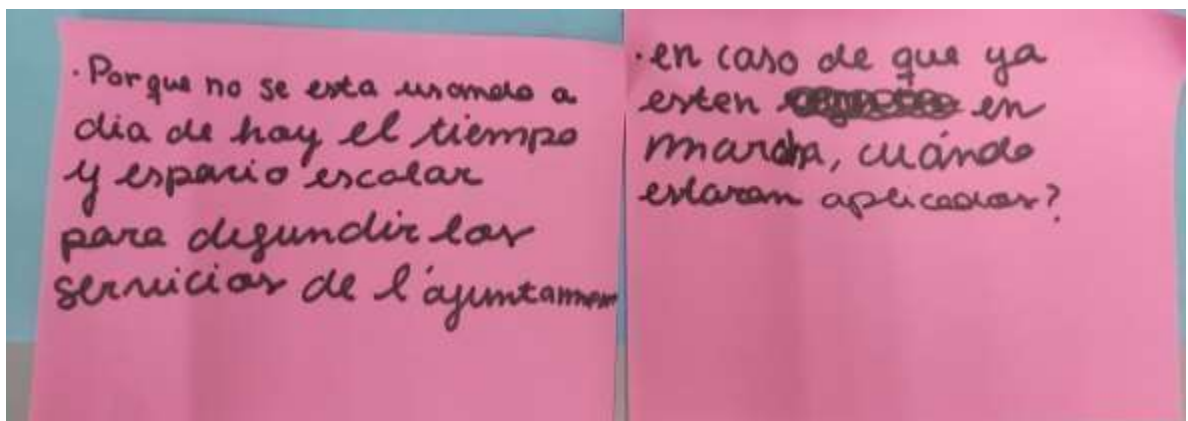 · Porque no se esta usando a
dia de hoy el tiempo
y espacio escolar
para difundir los
servicios de l'ajuntamen
· en caso de que ya
esten en
marcha, cuándo
estaran aplicadas?